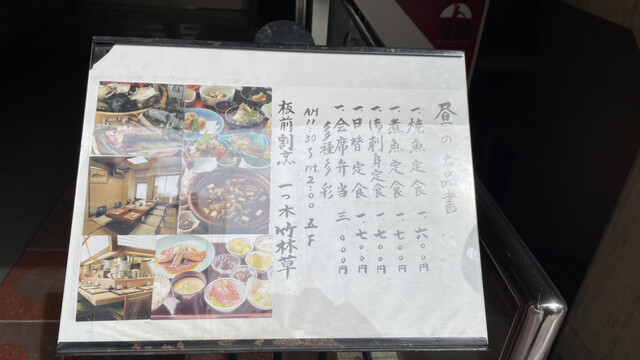 昼の お品書
一、焼魚定食 一、六〇〇円
一、煮魚定食 一、七〇〇円
一、御刺身定食 一、七〇〇円
一、日替定食 一、七〇〇円
一、会席弁当 三、〇〇〇円
多種多彩
AM11:30〜PM2:00 五下
板前割烹 一つ木 竹林草